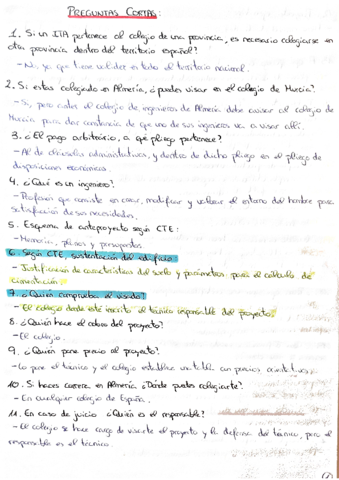 PREGUNTAS CORTAS:
1. Si un ITA pertenece al colegio de una provincia, es necesario colegiarse en
otra provincia dentro del territorio español?
- No, ya que tiene validez en todo el territorio nacional.
2. Si estas colegiado en Almería, ¿puedes visar en el colegio de Murcia?
- Si, pero antes el colegio de ingenieros de Almería debe avisar al colegio de
Murcia para dar constancia de que uno de sus ingenieros va a visar allí.
3. ¿El pago arbitrario, a qué pliego pertenece?
- Al de cláusulas administrativas, y dentro de dicho pliego en el pliego de
disposiciones económicas.
4. ¿Qué es un ingeniero?
- Profesión que consiste en crear, modificar y utilizar el entorno del hombre para
satisfacción de sus necesidades.
5. Esquema de anteproyecto según CTE:
- Memoria, planos y presupuestos.
6. Según CTE, sustentación del edificio:
- Justificación de características del suelo y parámetros para el cálculo de
cimentación.
7. ¿Quién comprueba el visado?
- El colegio donde este inscrito el técnico responsable del proyecto.
8. ¿Quién hace el cobro del proyecto?
- El colegio.
9. ¿Quién pone precio al proyecto?
- Lo pone el técnico y el colegio establece una tabla con precios orientativos.
10. Si haces carrera en Almería. ¿Dónde puedes colegiarte?
- En cualquier colegio de España.
11. En caso de juicio ¿Quién es el responsable?
- El colegio se hace cargo de visarte el proyecto y la defensa del técnico, pero el
responsable es el técnico.